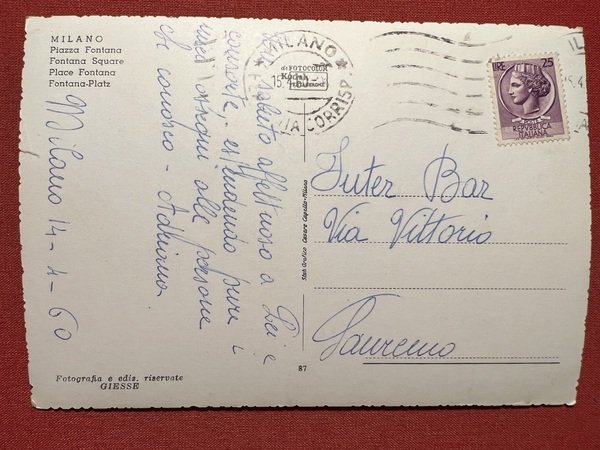 MILANO
Piazza Fontana
Fontana Square
Place Fontana
Fontana-Platz
MILANO
da FOTOCOLOR
Kodak
EKTACHROME
15.4.
CORRISP
LIRE 25
REPVBBLICA
ITALIANA
saluto affettuoso a Lei e
consorte - estendendo pure i
miei ossequi alle persone
che conosco - Adriana
Milano 14-4-60
Inter Bar
Via Vittorio
Sanremo
Stab. Grafico Cesare Capello-Milano
87
Fotografia e ediz. riservate
GIESSE